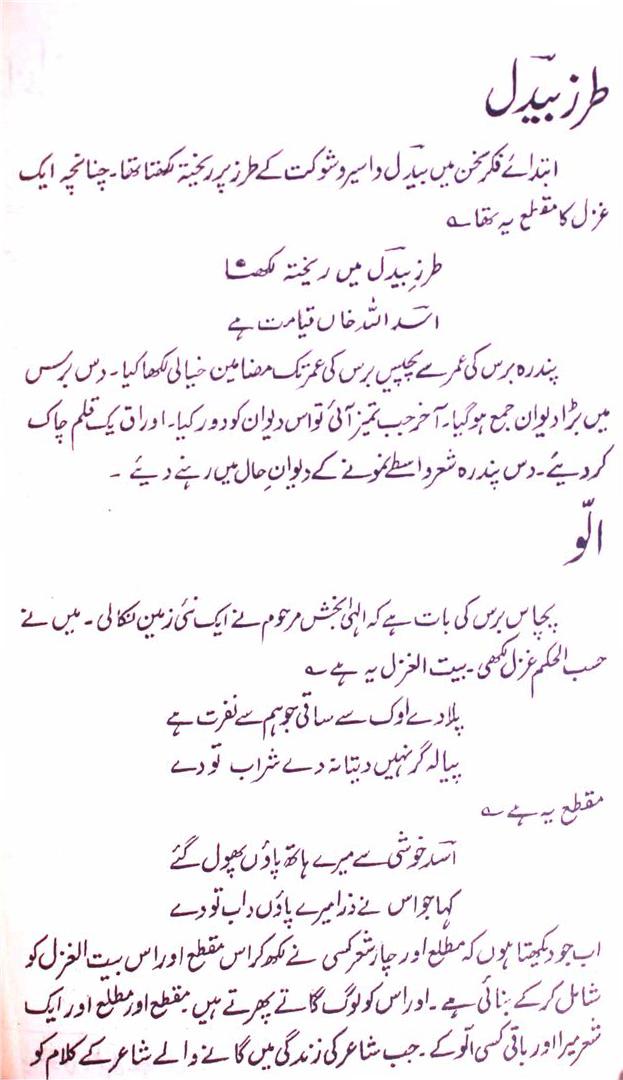 طرز بیدؔل
ابتدائے فکر سخن میں بیدؔل و اسیر و شوکت کے طرز پر ریختہ لکھتا تھا۔ چنانچہ ایک
غزل کا مقطع یہ تھا ؎
طرزِ بیدؔل میں ریختہ لکھنا
اسؔد اللہ خاں قیامت ہے
پندرہ برس کی عمر سے پچیس برس کی عمر تک مضامین خیالی لکھا کیا۔ دس برس
میں بڑا دیوان جمع ہو گیا۔ آخر جب تمیز آئی تو اس دیوان کو دور کیا۔ اوراق یک قلم چاک
کر دیئے۔ دس پندرہ شعر واسطے نمونے کے دیوانِ حال میں رہنے دیئے ۔
الّو
پچاس برس کی بات ہے کہ الٰہی بخش مرحوم نے ایک نئی زمین نکالی ۔ میں نے
حسب الحکم غزل لکھی۔ بیت الغزل یہ ہے ؎
پلا دے اوک سے ساقی جو ہم سے نفرت ہے
پیالہ گر نہیں دیتا نہ دے شراب تو دے
مقطع یہ ہے ؎
اسؔد خوشی سے میرے ہاتھ پاؤں پھول گئے
کہا جو اس نے ذرا میرے پاؤں داب تو دے
اب جو دیکھتا ہوں کہ مطلع اور چار شعر کسی نے لکھ کر اس مقطع اور اس بیت الغزل کو
شامل کر کے بنائی ہے۔ اور اس کو لوگ گاتے پھرتے ہیں۔ مقطع اور مطلع اور ایک
شعر میرا اور باقی کسی الّو کے۔ جب شاعر کی زندگی میں گانے والے شاعر کے کلام کو